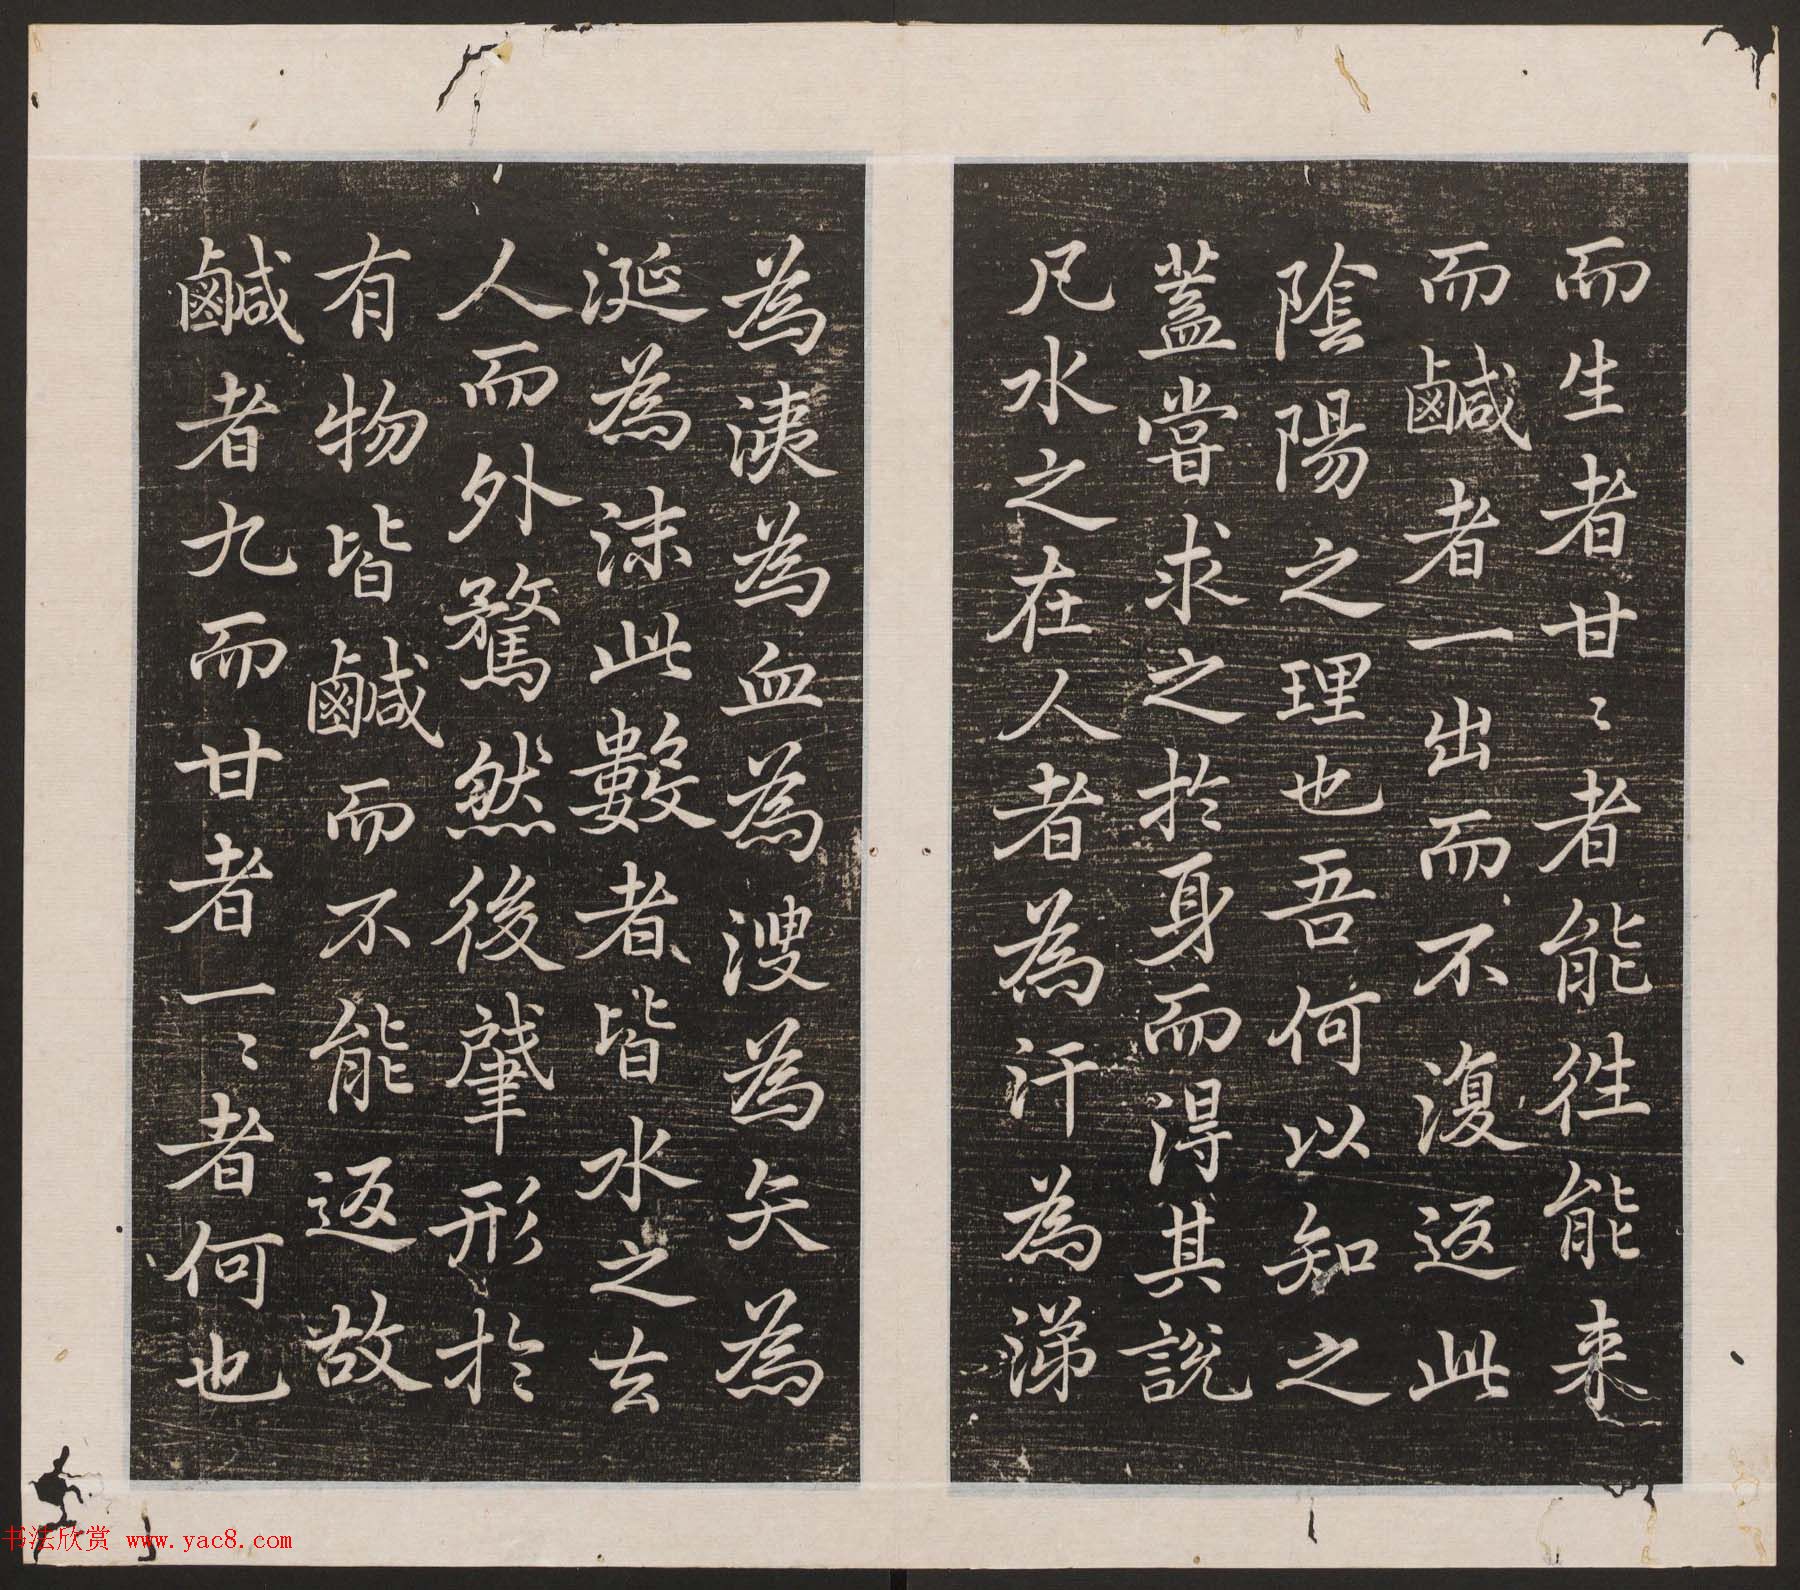 而生者甘〻者能徃能来
而鹹者一出而不復返此
陰陽之理也吾何以知之
蓋嘗求之於身而得其說
凡水之在人者為汗為涕
為洟為血為溲為矢為
涎為沫此數者皆水之去
人而外騖然後肈形於
有物皆鹹而不能返故
鹹者九而甘者一〻者何也
书法欣赏 www.yac8.com